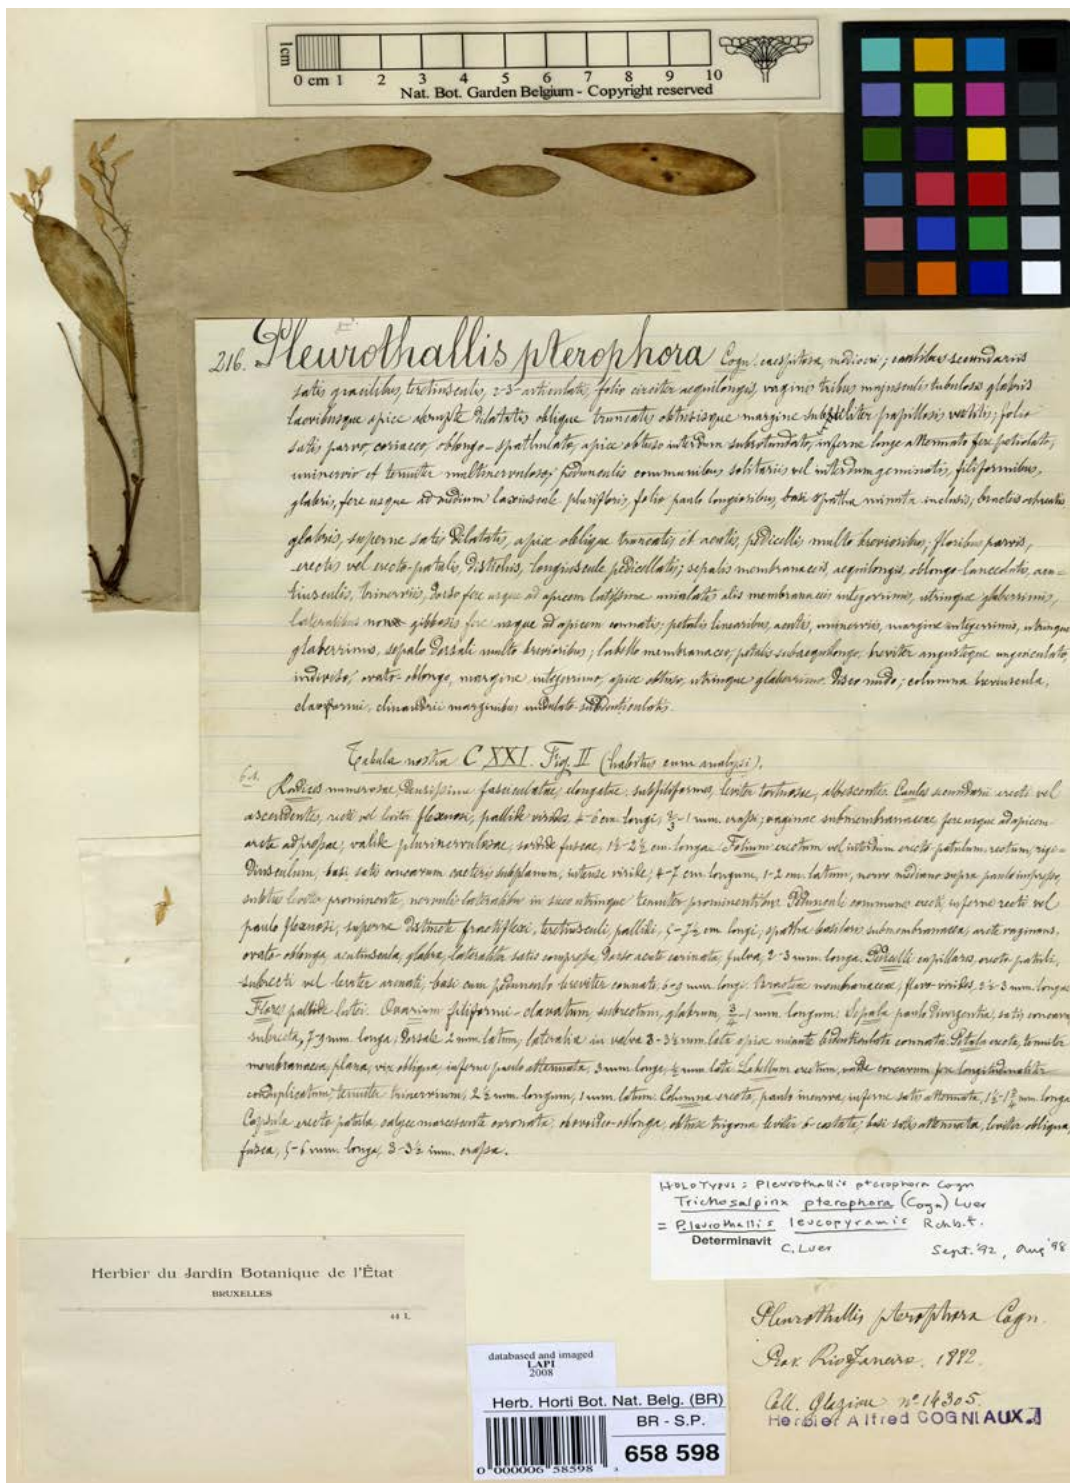 1cm
0 cm 1 2 3 4 5 6 7 8 9 10
Nat. Bot. Garden Belgium - Copyright reserved
216. Pleurothallis pterophora Cogn. caespitosa, mediocri; caulibus secundariis
satis gracilibus, teretiusculis, 2-3-articulatis, folio circiter aequilongis, vaginis tribus majusculis tubulosis glabris
laevibusque apice abrupte dilatatis oblique truncatis obtusisque margine subtiliter papillosis vestitis; folio
satis parvo, coriaceo, oblongo-spathulato, apice obtuso interdum subrotundato, inferne longe attenuato fere petiolato,
uninervio et tenuiter multinervuloso; pedunculis communibus solitariis vel interdum geminatis, filiformibus,
glabris, fere usque ad medium laxiuscule plurifloris, folio paulo longioribus, basi spatha minuta inclusis; bracteis ochreatis
glabris, superne satis dilatatis, apice oblique truncatis et acutis, pedicellis multo brevioribus; floribus parvis,
erectis vel erecto-patulis, distichis, longiuscule pedicellatis; sepalis membranaceis, aequilongis, oblongo-lanceolatis, acu-
tiusculis, trinerviis, dorso fere usque ad apicem latissime unialatis alis membranaceis integerrimis, utrinque glaberrimis,
lateralibus non gibbosis fere usque ad apicem connatis; petalis linearibus, acutis, uninerviis, margine integerrimis, utrinque
glaberrimis, sepalo dorsali multo brevioribus; labello membranaceo, petalis subaequilongo, breviter angusteque unguiculato,
indiviso, ovato-oblongo, margine integerrimo, apice obtuso, utrinque glaberrimo, disco nudo; columna breviuscula,
claviformi, clinandrii marginibus undulato-subdenticulatis.
Tabula nostra CXXI. Fig. II (habitus cum analysi).
Radices numerosae, densissime fasciculatae, elongatae, subfiliformes, leviter tortuosae, albescentes. Caules secundarii erecti vel
ascendentes, recti vel leviter flexuosi, pallide virides, 4-6 cm. longi, 2/3-1 mm. crassi; vaginae submembranaceae fere usque ad apicem
arcte adpressae, valide plurinervulosae, sordide fuscae, 1½-2½ cm. longae. Folium erectum vel interdum erecto-patulum, rectum, rigi-
diusculum, basi satis concavum caeteris subplanum, intense viride, 4-7 cm. longum, 1-2 cm. latum, nervo mediano supra paulo impresso,
subtus leviter prominente, nervulis lateralibus in sicco utrinque tenuiter prominentibus. Pedunculi communes erecti, inferne recti vel
paulo flexuosi, superne distincte fractiflexi, teretiusculi, pallidi, 5-7½ cm. longi, spatha basilaris submembranacea, arcte vaginans,
ovato-oblonga, acutiuscula, glabra, lateraliter satis compressa dorso acute carinata, fulva, 2-3 mm. longa. Pedicelli capillares, erecto-patuli,
subrecti vel leviter arcuati, basi cum pedunculo breviter connati, 6-9 mm. longi. Bracteae membranaceae, flavo-virides, 2½-3 mm. longae.
Flores pallide lutei. Ovarium filiformi-clavatum, subrectum, glabrum, 3/4-1 mm. longum. Sepala paulo divergentia, satis concava,
subrecta, 7-9 mm. longa; dorsale 2 mm. latum, lateralia in valva 3-3½ mm. lata apice minute bidenticulata connata. Petala erecta, tenuiter
membranacea, plana, vix obliqua, inferne paulo attenuata, 3 mm. longa, ½ mm. lata. Labellum erectum, valde concavum fere longitudinaliter
conduplicatum, tenuiter trinervium, 2½ mm. longum, 1 mm. latum. Columna erecta, paulo incurva, inferne satis attenuata, 1½-1¾ mm. longa.
Capsula erecto-patula, calyce marcescente coronata, obovoideo-oblonga, obtuse trigona leviter 6-costata, basi satis attenuata, leviter obliqua,
fusca, 5-6 mm. longa, 3-3½ mm. crassa.
HOLOTYPUS: Pleurothallis pterophora Cogn
Trichosalpinx pterophora (Cogn) Luer
= Pleurothallis leucopyramis Rchb.f.
Determinavit C. Luer Sept. '92, Aug '98
Herbier du Jardin Botanique de l'État
BRUXELLES
databased and imaged
LAPI
2008
Herb. Horti Bot. Nat. Belg. (BR)
BR - S.P.
658 598
0 000006 58598
Pleurothallis pterophora Cogn.
Rio Janeiro. 1882.
Coll. Glaziou nº 14305.
Herbier Alfred COGNIAUX